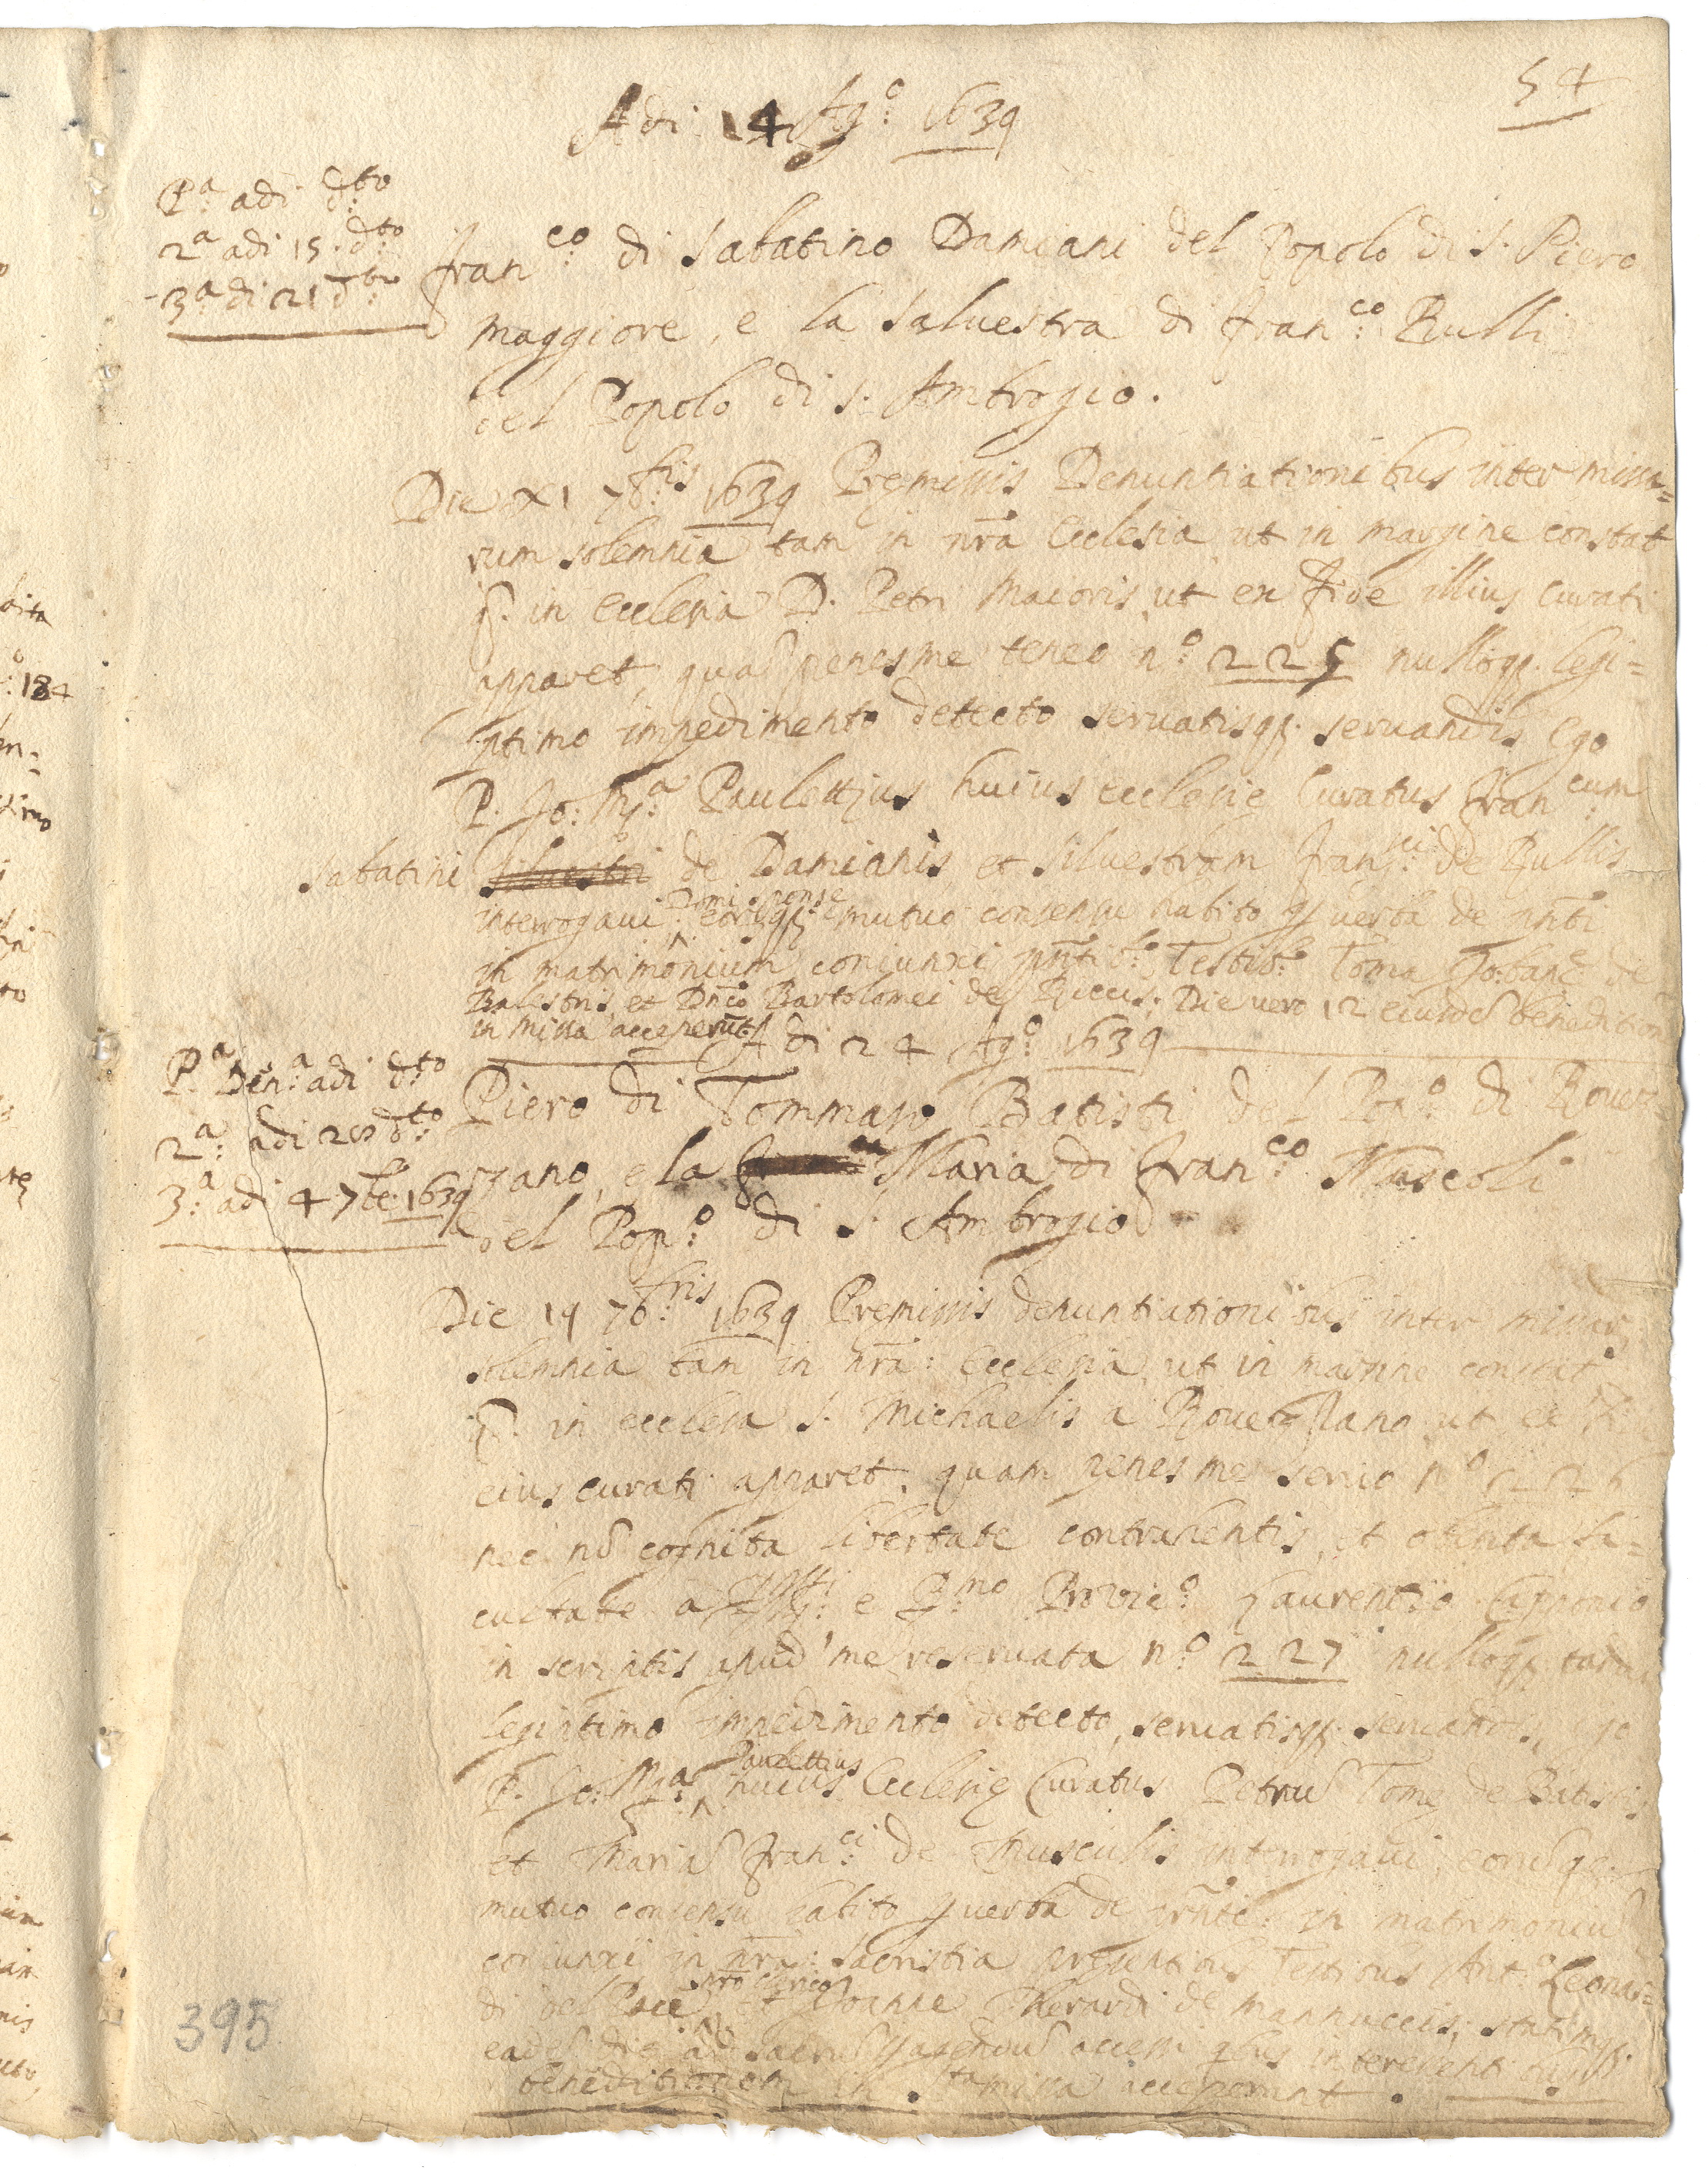 54
Adi 14 Ag:o 1639
P:a adi d:to
2:a adi 15. d:to
3:a di 21 d:to
Fran:co di Sabatino Damiani del Popolo di S. Piero
maggiore, e la Saluestra di Fran:co Bulli
del Popolo di S. Ambrogio.
Die XI 7b:ris 1639 Premissis Denuntiationibus inter missa=
rum solemnia tam in nra Ecclesia ut in margine constat
q. in Ecclesia D. Petri Maioris, ut ex fide illius Curati
apparet, quã penes me teneo n:o 225 nulloq. legi=
ptimo impedimento detecto seruatisq. seruandis Ego
P. Jo: M:a Paulettius huius ecclesie Curatus Fran:cum
Sabatini de Damianis, et Siluestram Fran:ci de Bullis
interrogaui, eorũq. mutuo consensu habito p verba de pñti
in matrimonium coniunxi pñtib: Testib: Toma Jo: de
Balestris, et Dñco Bartolomei de Riccis. Die vero 12 eiusdẽ beneditionẽ
in missa acceperũt
Adi 24 Ag:o 1639
P:a Den:a adi d:to
2:a adi 28 d:to
3:a adi 4 7bre 1639
Piero di Tommaso Batisti del Pop:o di Rouez=
zano, e la Maria di Fran:co Muscoli
del Pop:o di S. Ambrogio
Die 19 7b:ris 1639 Premissis denuntiationibus inter missar.
solemnia tam in nra: Ecclesia, ut in margine constat
q. in ecclesia S. Michaelis a Rouezzano ut ex
eius curati apparet, quam penes me seruo n:o 226
nec nõ cognita libertate contrahentis, et obtenta fa=
cultate a e R:mo Prouic:o Laurentio Capponio
in scriptis apud me reseruata n:o 227 nulloq. tamen
legiptimo impedimento detecto, seruatisq. seruandis, ego
P. Jo: M:a Paulettius huius Ecclesie Curatus Petrũ Tome de Batistis
et Mariã Fran:ci de Musculis interrogaui, eorũq.
mutuo consensu habito p verba de prñti: in matrimoniũ
coniunxi in nra: Sacristia presentibus Testibus Ant:o Leonar=
di del Pace nro clerico et Joanne Gherardi de Mannuccis; statimq.
eadẽ die ad sacrũ accessi
beneditionem in s:ta missa acceperunt.
395